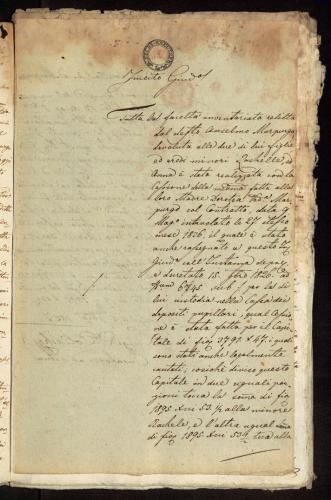 Inclito Giud.º
Tutta la facoltà inventariata relitta
dal defto Anselmo Marpurgo
devoluta alle due di lui figlie
ed eredi minori Rachelle, ed
Anna è stata realizzata con la
Cessione della medma fatta alla
loro Madre
Marpur
gò col Contratto, dalla
intavolato li
mese 1826, il quale è stato
anche rassegnato a questo
Giud.º coll'Instanza de
e decretato 15.
Num 6745 sub / per la di
lui custodia nella Cassa dei
depositi pupillari; qual Cessio
ne è stata fatta per il Capi
tale di fior. 3791 X 47; i quali
sono stati anche legalmente
cautati; cosichè diviso questo
Capitale in due uguali por
zioni tocca la soma di fior.
1895 Xni 53 ½ alla minore
Rachele, e l'altra ugual soma
di fior. 1895 Xni 53 ½ tocca alla